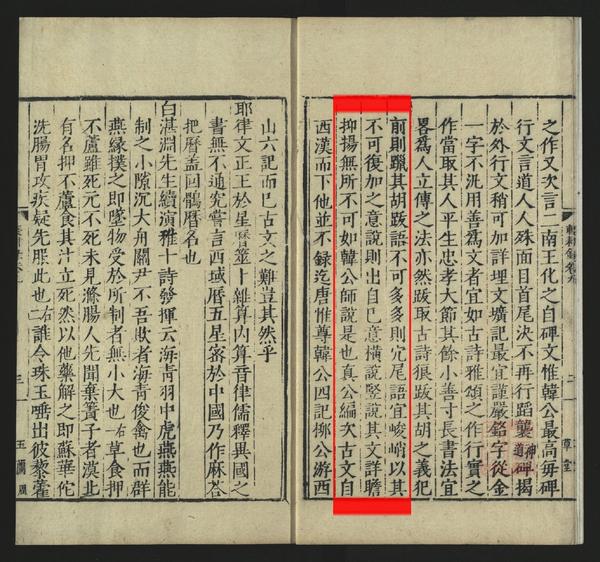 之作又次言二南王化之自碑文惟韓公最高每碑
行文言道人人殊面目首尾決不再行蹈襲神道碑揭
於外行文稍可加詳埋文壙記最宜謹嚴銘字從金
一字不汎用善為文者宜如古詩雅頌之作行實之
作當取其人平生忠孝大節其餘小善寸長書法宜
畧為人立傳之法亦然跋取古詩狼跋其胡之義犯
前則躐其胡跋語不可多多則冗尾語宜峻峭以其
不可復加之意說則出自己意橫說豎說其文詳贍
抑揚無所不可如韓公師說是也真公編次古文自
西漢而下他並不錄迄唐惟尊韓公四記柳公游西
山六記而已古文之難豈其然乎
耶律文正王於星曆筮卜雜算內算音律儒釋異國之
書無不通究嘗言西域曆五星密於中國乃作麻荅
把曆蓋回鶻曆名也
白湛淵先生續演雅十詩發揮云海青羽中虎燕燕能
制之小隙沉大舟關尹不吾欺者海青俊禽也而群
燕緣撲之即墜物受於所制者無小大也右一草食押
不蘆雖死元不死未見滌腸人先聞棄簣子者漠
有名押不蘆食其汁立死然以他藥解之即蘇華佗
洗腸胃攻疾疑先服此也右二誰令珠玉唾出彼藜藿